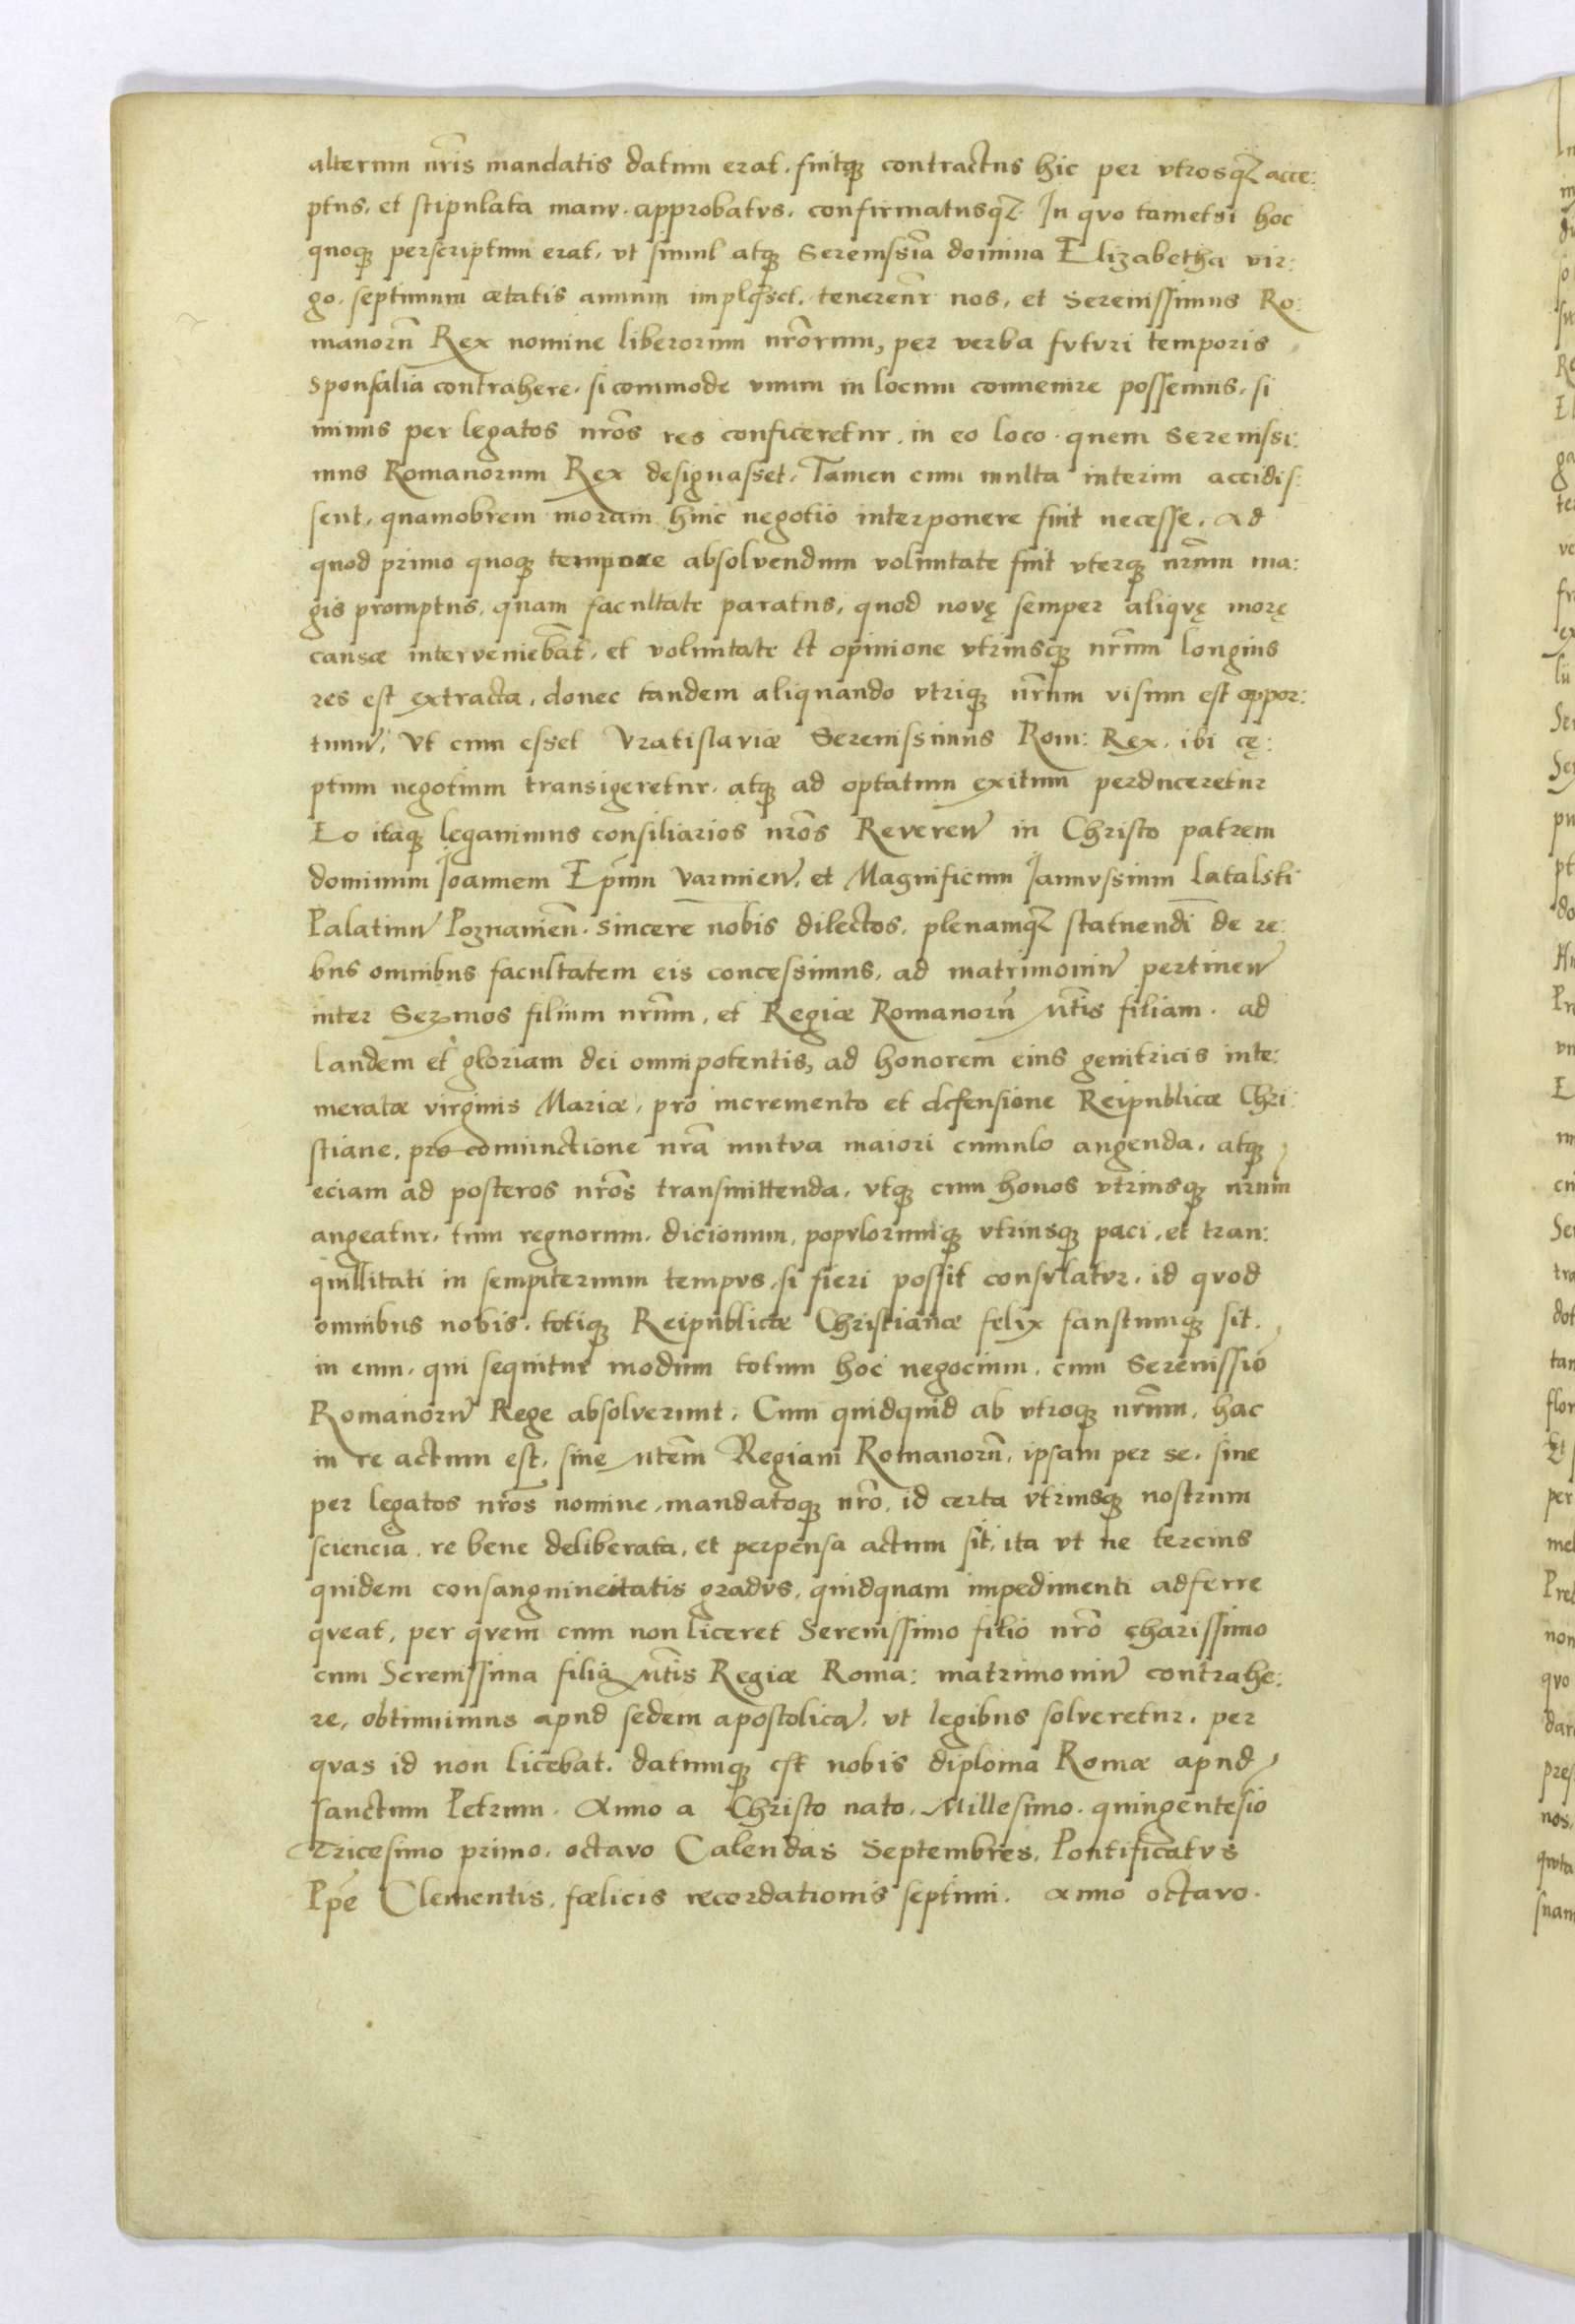 alterum nr̃is mandatis datum erat. fuitqꝫ contractus hic per vtrosqꝫ acce:
ptus, et stipulata manv. approbatvs. confirmatusqꝫ. In qvo tametsi hoc
quoqꝫ perscriptum erat, vt simul atqꝫ Serenissĩa domina Elizabetha vir:
go. septimum ætatis annum implesset. tenerent̃r nos, et Serenissimus Ro:
manorũ Rex nomine liberorum nr̃orum, per verba fvtvri temporis
sponsalia contrahere. si commode vnum in locum conuenire possemus, si
minus per legatos nr̃os res conficeretur. in eo loco. quem Serenissi:
mus Romanorum Rex designasset, Tamen cum multa interim accidis:
sent, quamobrem moram huic negotio interponere fuit necesse. Ad
quod primo quoqꝫ tempore absolvendum voluntate fuit vterqꝫ nr̃um ma:
gis promptus, quam facultate paratus, quod novę semper aliqvę morę
causæ interveniebãt, et voluntate et opinione vtriusqꝫ nr̃um longius
res est extracta, donec tandem aliquando vtriqꝫ nr̃um visum est oppor:
tunũ, Vt cum esset Vratislaviæ Serenissimus Rom: Rex. ibi cę:
ptum negotium transigeretur. atqꝫ ad optatum exitum perduceretur
Eo itaqꝫ legauimus consiliarios nr̃os Reveren̄ in Christo patrem
dominum Joannem Ep̃um Varmien̄, et Magnificum Janvssium Latalski
Palatinũ Poznanien̄. sincere nobis dilectos. plenamqꝫ statuendi de re:
bus omnibus facultatem eis concessimus, ad matrimoniũ pertinen̄
inter Ser̃mos filium nr̃um, et Regiæ Romanorũ Mt̃is filiam. ad
laudem et gloriam dei omnipotentis, ad honorem eius genitricis inte:
meratæ virginis Mariæ, pro incremento et defensione Reipublicæ Chri:
stiane, pro coniunctione nr̃a mutva maiori cumulo augenda, atqꝫ
eciam ad posteros nr̃os transmittenda, vtqꝫ cum honos vtriusqꝫ nr̃um
augeatur, tum regnorum. dicionum, popvlorumqꝫ vtriusqꝫ paci, et tran:
quillitati in sempiternum tempvs, si fieri possit consvlatvr, id qvod
omnibus nobis, totiqꝫ Reipublicæ Christianæ felix faustumqꝫ sit.
in eum. qui sequitur modum totum hoc negocium, cum Serenissĩo
Romanorũ Rege absolverunt, Cum quidquid ab vtroqꝫ nr̃um, hac
in re actum est, siue Mt̃em Regiam Romanorũ, ipsam per se, siue
per legatos nr̃os nomine, mandatoqꝫ nr̃o, id certa vtriusqꝫ nostrum
sciencia, re bene deliberata, et perpensa actum sit, ita vt ne tercius
quidem consanguineitatis gradvs, quidquam impedimenti adferre
qveat, per qvem cum non liceret Serenissimo filio nr̃o charissimo
cum Serenissima filia Mt̃is Regiæ Roma: matrimoniũ contrahe:
re, obtinuimus apud sedem apostolicã, vt legibus solveretur, per
qvas id non licebat. datumqꝫ est nobis diploma Romæ apud
sanctum Petrum. Anno a Christo nato, Millesimo. quingentesĩo
Tricesimo primo, octavo Calendas Septembres, Pontificatvs
Pp̃e Clementis, fælicis recordationis septimi. Anno octavo.